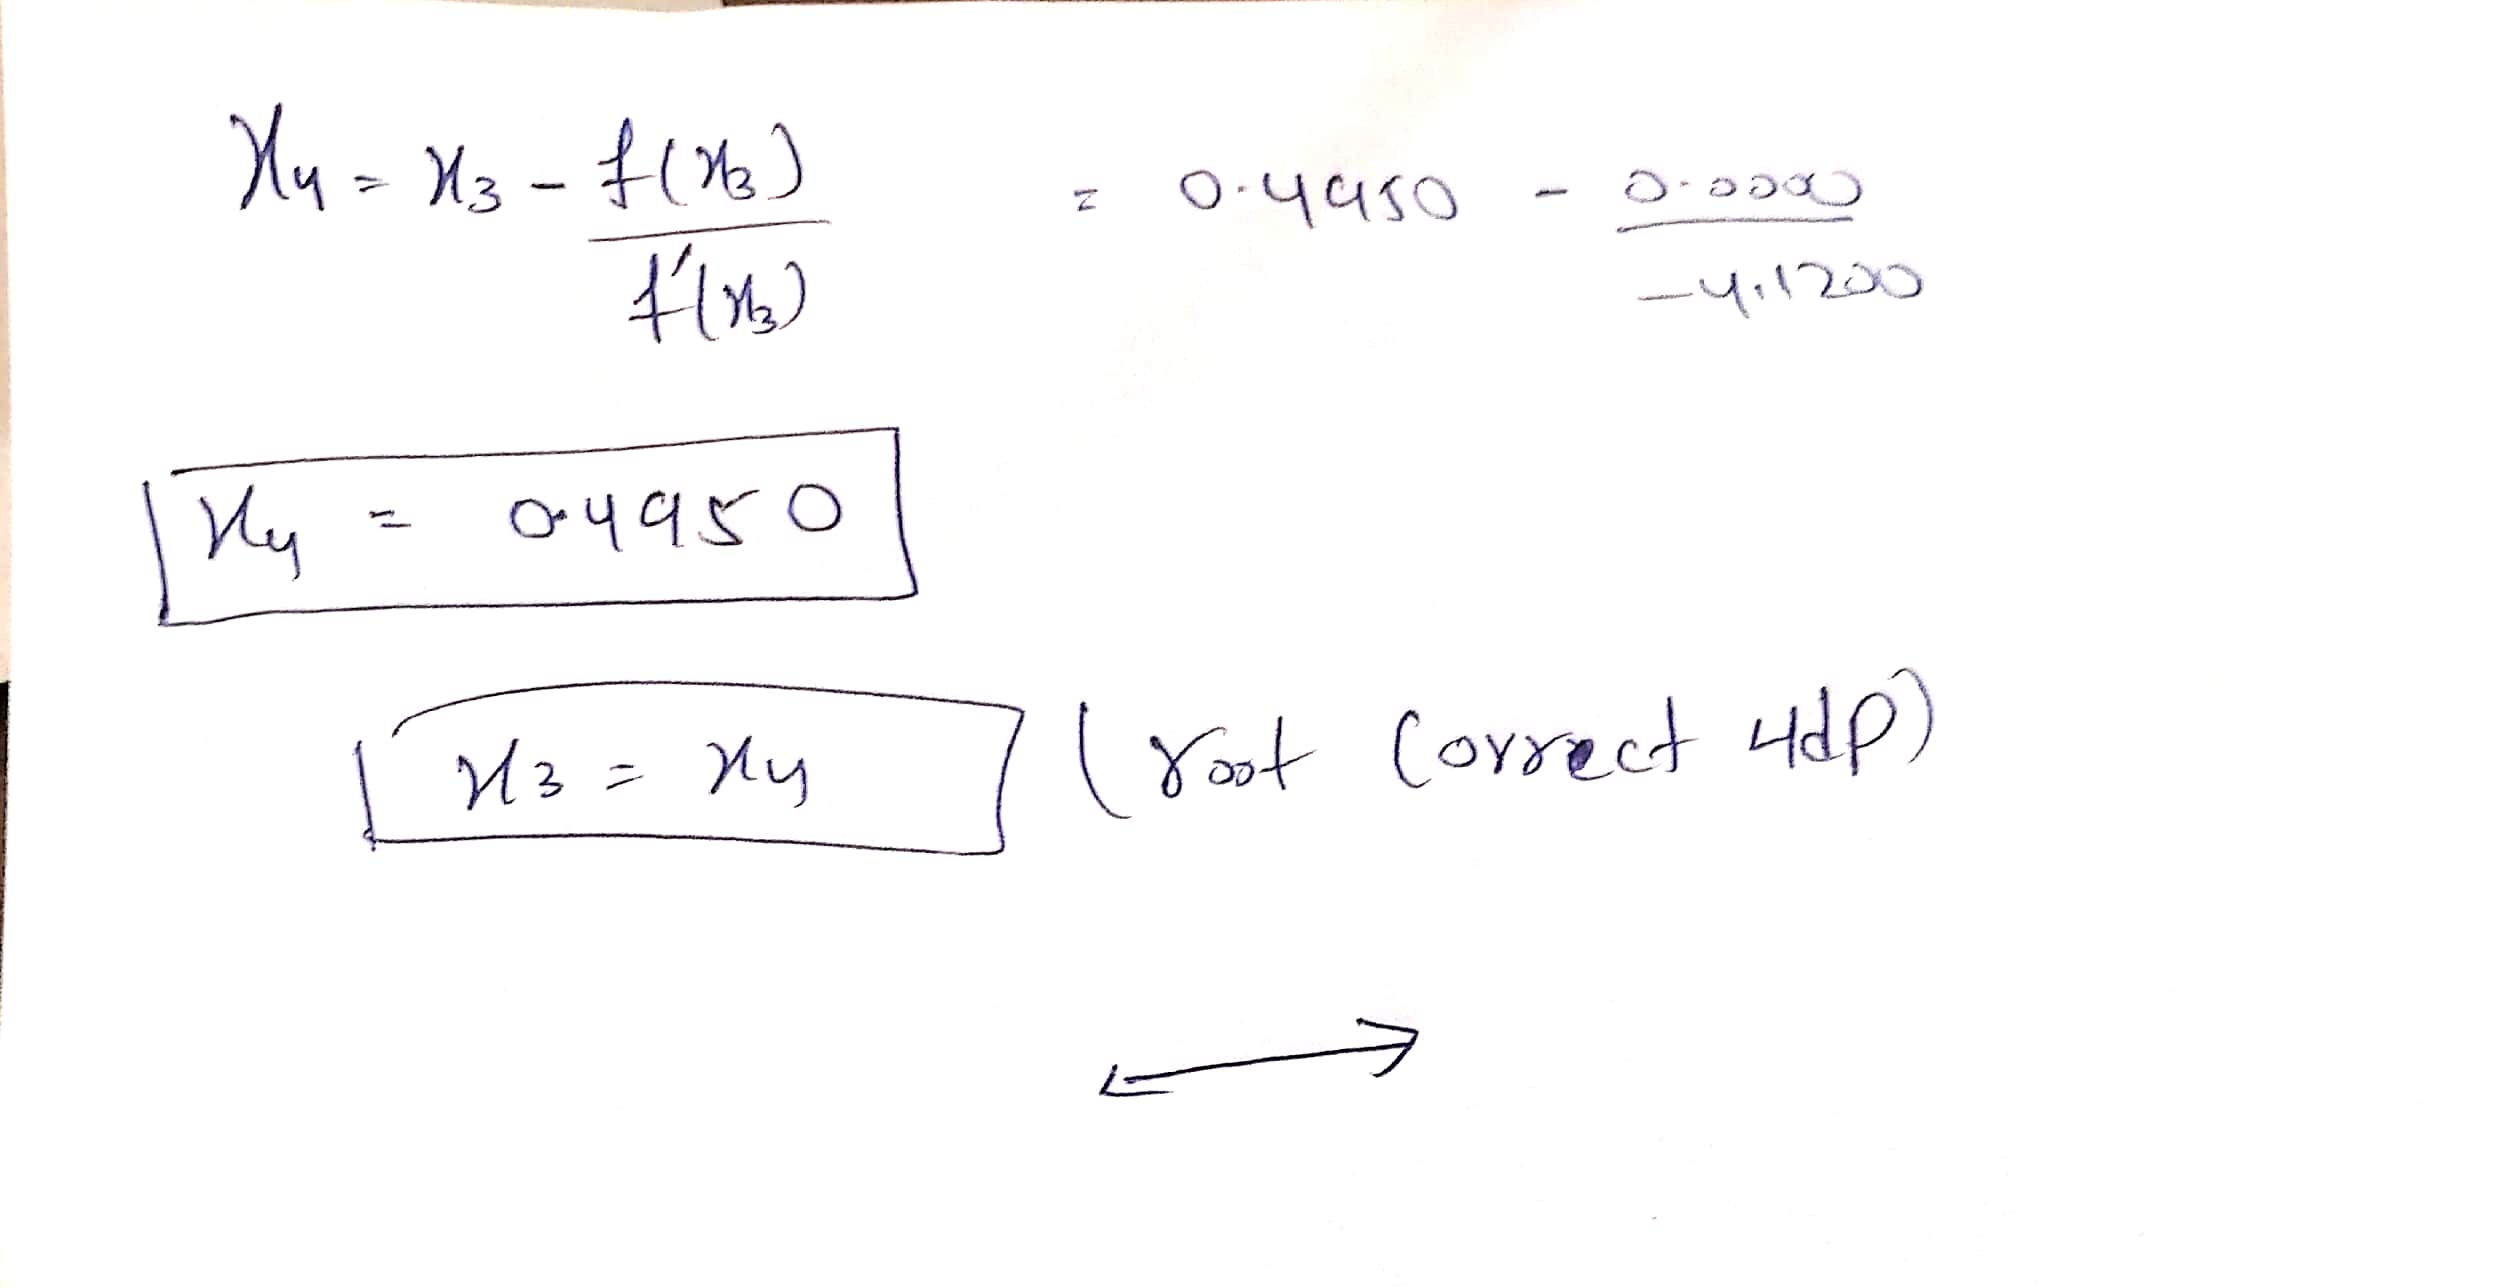 x₄ = x₃ - f(x₃) / f'(x₃) = 0.4950 - 0.0000 / -4.1200
x₄ = 0.4950
x₃ = x₄ (root correct 4dp)